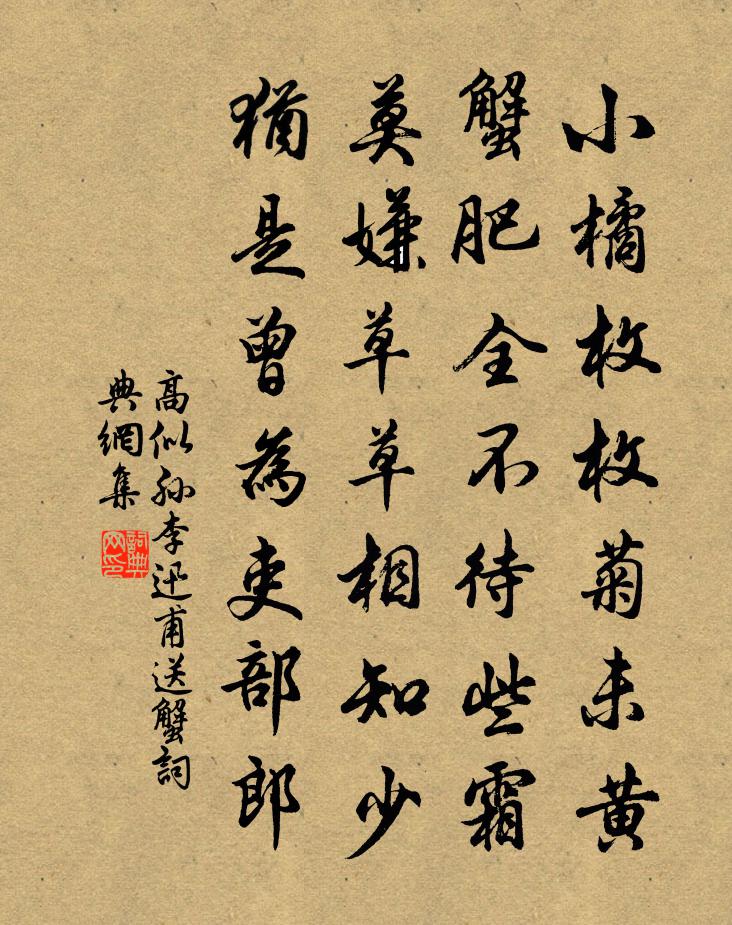 小橘枚枚菊未黄
蟹肥全不待些霜
莫嫌草草相知少
猶是曾為吏部郎
高似孙李迅甫送蟹詞
典網集
詞典
网印